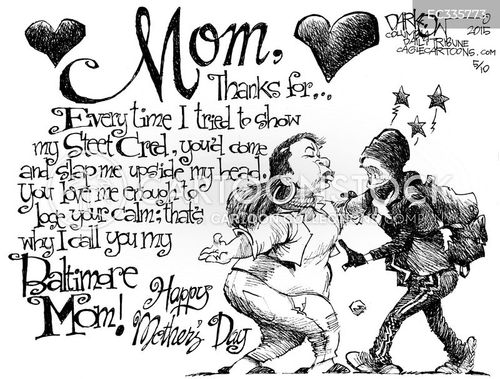 EC335773
DARKOW ©
2015
COLUMBIA
DAILY TRIBUNE
CAGLECARTOONS.COM
5/10
Mom,
Thanks for...
Every time I tried to show
my Steet Cred, you'd come
and slap me upside my head.
You love me enough to
lose your calm; that's
why I call you my
Baltimore
Mom!
Happy
Mother's Day
CARTOONSTOCK